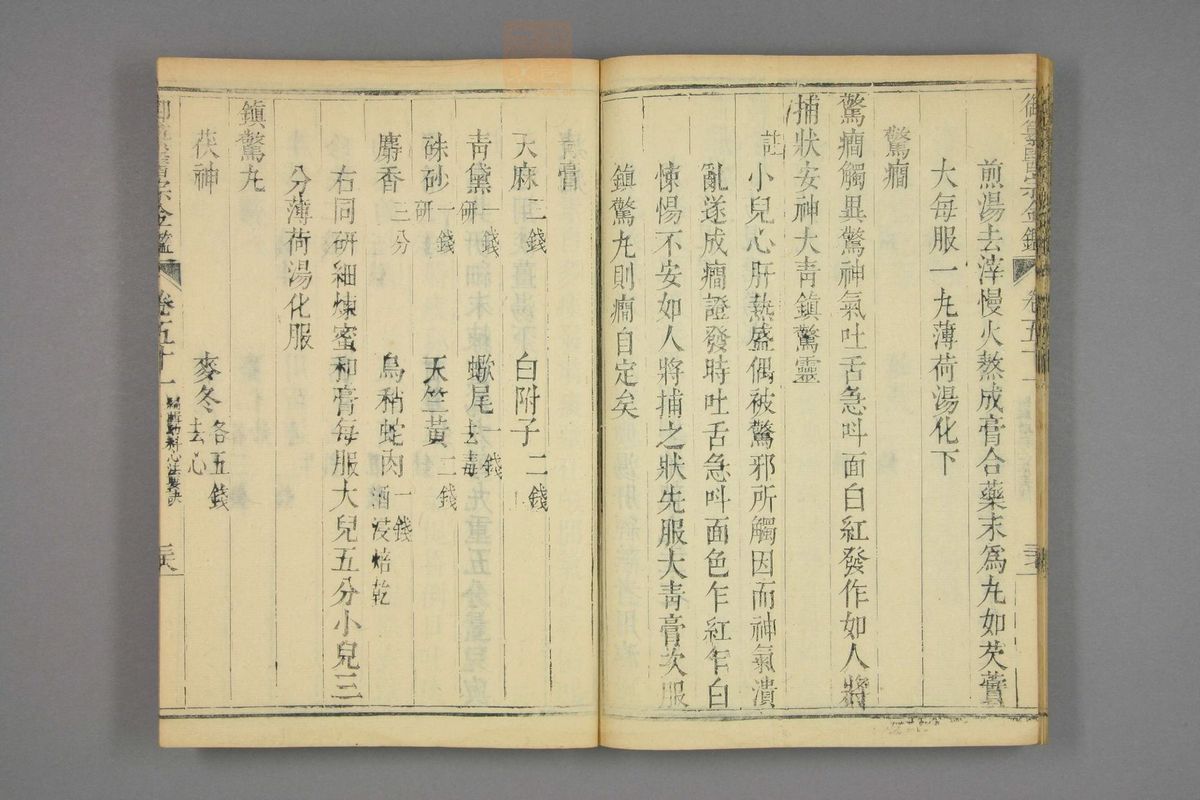 煎湯去滓慢火熬成膏合藥末爲丸如芡實
大每服一丸薄荷湯化下
驚癎
驚癎觸異驚神氣吐舌急呌面白紅發作如人將
捕狀安神大青鎮驚靈
註小兒心肝熱盛偶被驚邪所觸因而神氣潰
亂遂成癎證發時吐舌急呌面色乍紅乍白
悚惕不安如人將捕之狀先服大青膏次服
鎮驚丸則癎自定矣
青膏
天麻二錢 白附子二錢
青黛一錢研 蠍尾一錢去毒
硃砂一錢研 天竺黃二錢
麝香三分 烏稍蛇肉一錢酒浸焙乾
右同研細煉蜜和膏每服大兒五分小兒三
分薄荷湯化服
鎮驚丸
茯神 麥冬去心各五錢
卷五十一 編輯幼科心法要訣